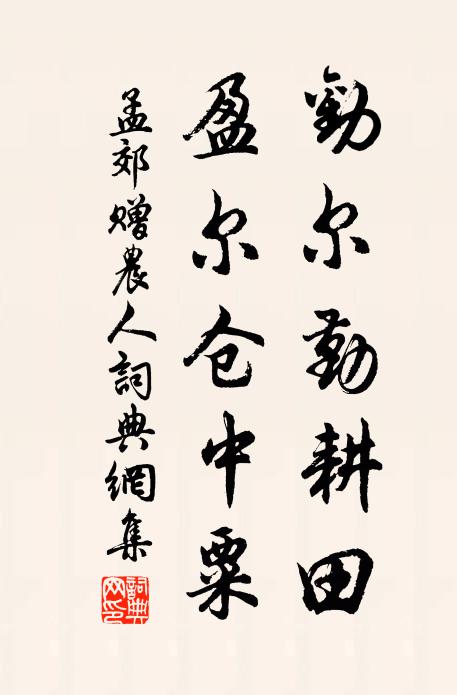 勸尔勤耕田
盈尔仓中粟
孟郊贈農人詞典網集
詞典网印